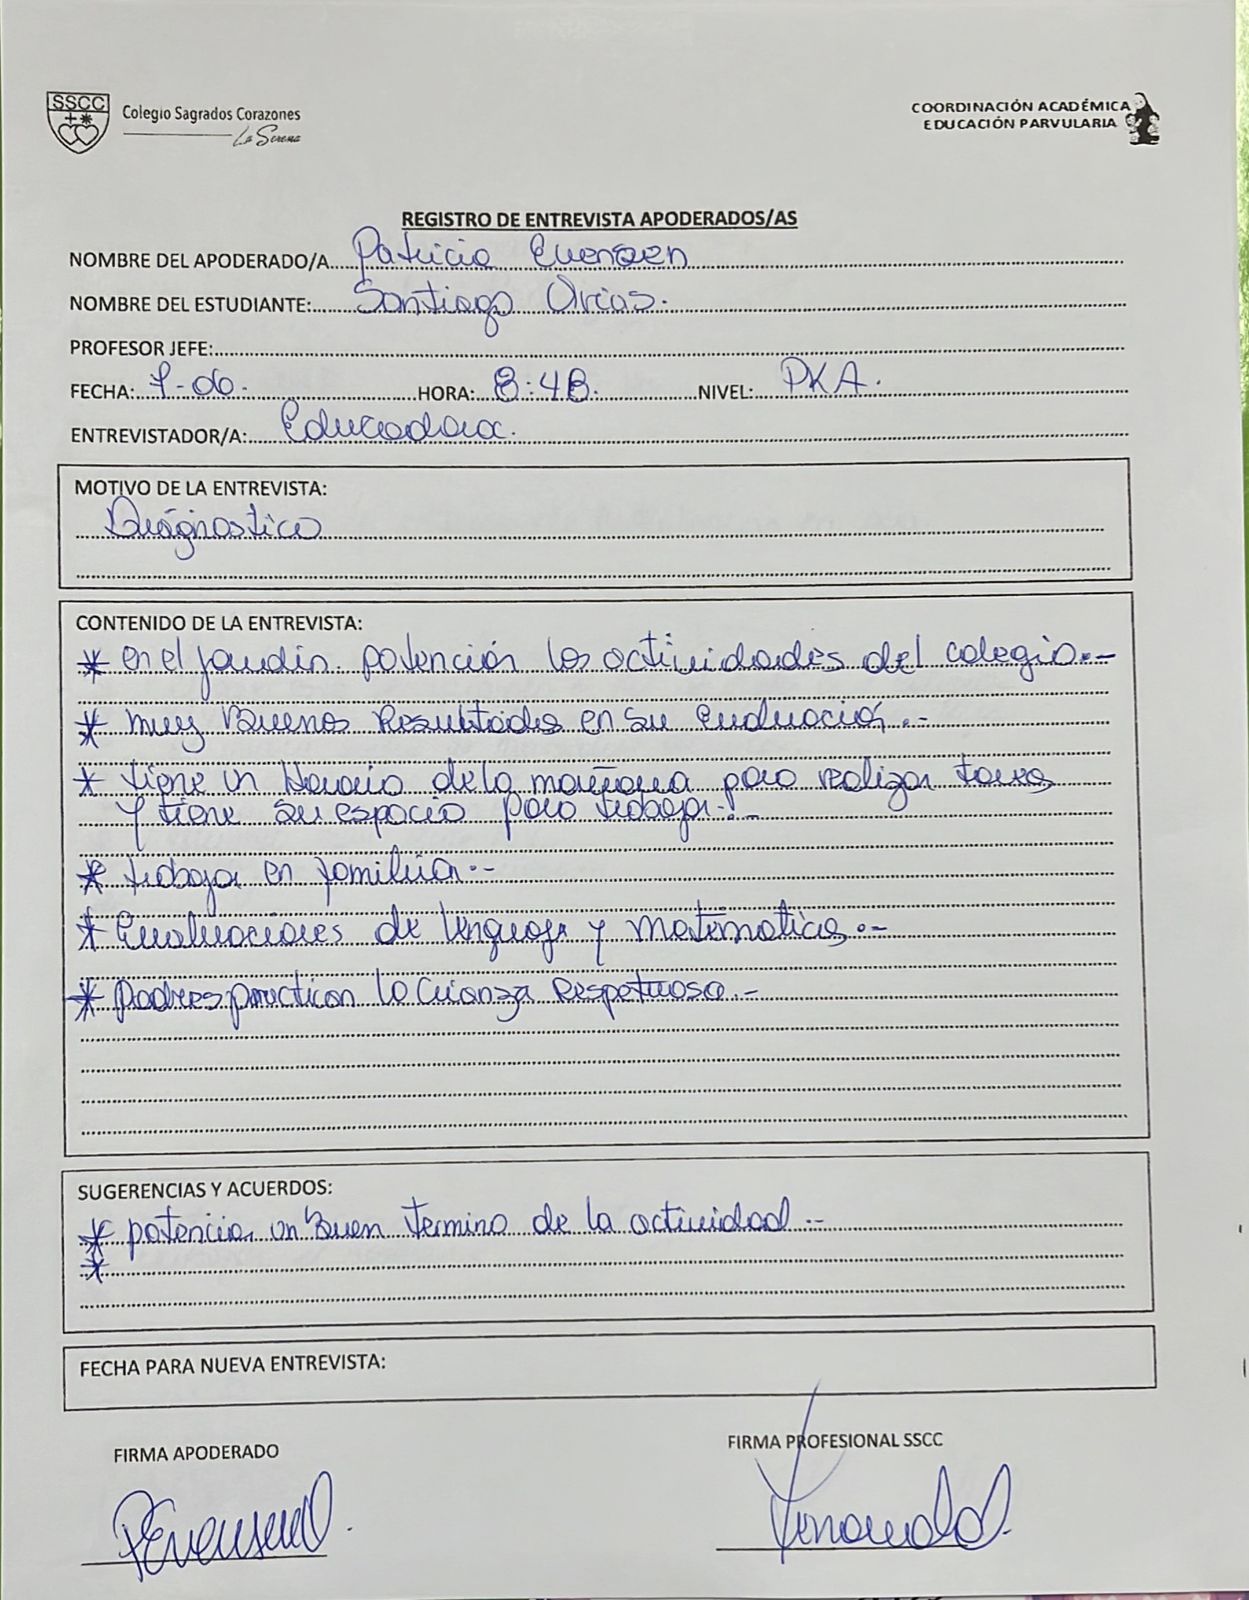 SSCC
Colegio Sagrados Corazones
La Serena
COORDINACIÓN ACADÉMICA
EDUCACIÓN PARVULARIA
REGISTRO DE ENTREVISTA APODERADOS/AS
NOMBRE DEL APODERADO/A Patricia Evensen
NOMBRE DEL ESTUDIANTE: Santiago Arias.
PROFESOR JEFE:
FECHA: 7-06. HORA: 8:48. NIVEL: PKA.
ENTREVISTADOR/A: Educadora.
MOTIVO DE LA ENTREVISTA:
Diágnostico
CONTENIDO DE LA ENTREVISTA:
* en el jardin potención las actividades del colegio.-
* muy Buenos Resultados en su evaluación.-
* tiene un Horario de la mañana para realizar tarea
y tiene su espacio para trabajar.-
* trabaja en familia.-
* Evaluaciones de lenguaje y matemática.-
* padres practican la crianza Respetuosa.-
SUGERENCIAS Y ACUERDOS:
* potenciar un Buen termino de la actividad.-
*
FECHA PARA NUEVA ENTREVISTA:
FIRMA APODERADO
FIRMA PROFESIONAL SSCC
PEvensen